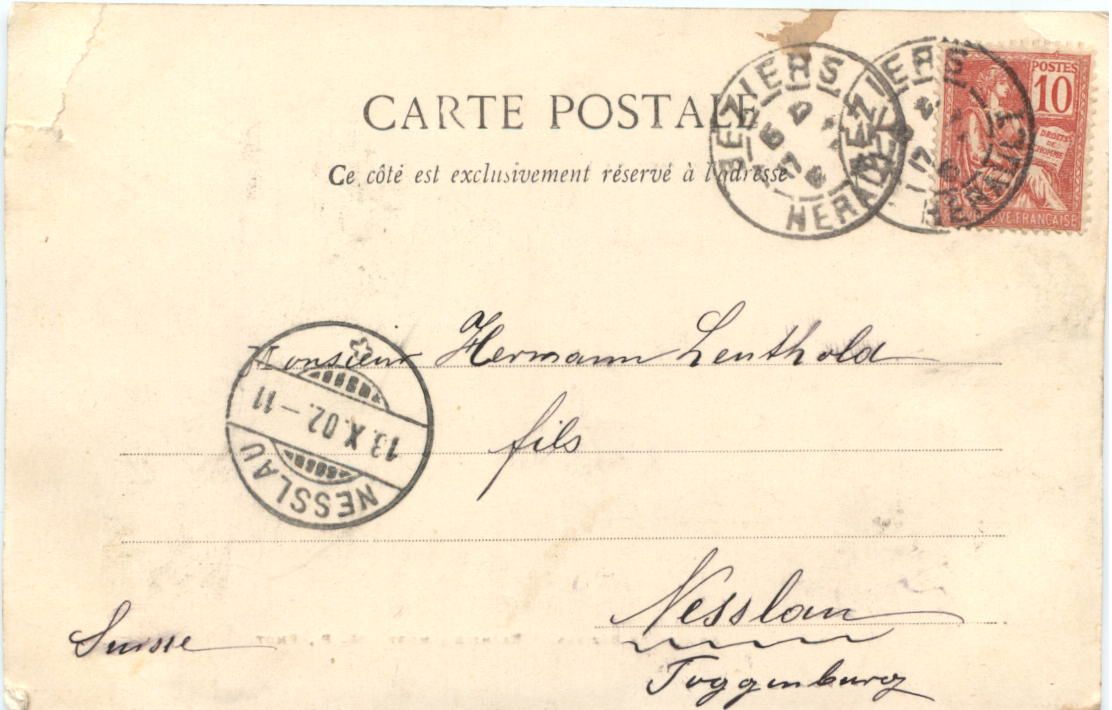 CARTE POSTALE
Ce côté est exclusivement réservé à l'adresse
BÉZIERS
HERAULT
BÉZIERS
HERAULT
POSTES
10
DROITS
DE
L'HOMME
REPUBLIQUE FRANÇAISE
Monsieur Hermann Leuthold
fils
13.X.02.–11
NESSLAU
Nesslau
Toggenburg
Suisse
PHOT